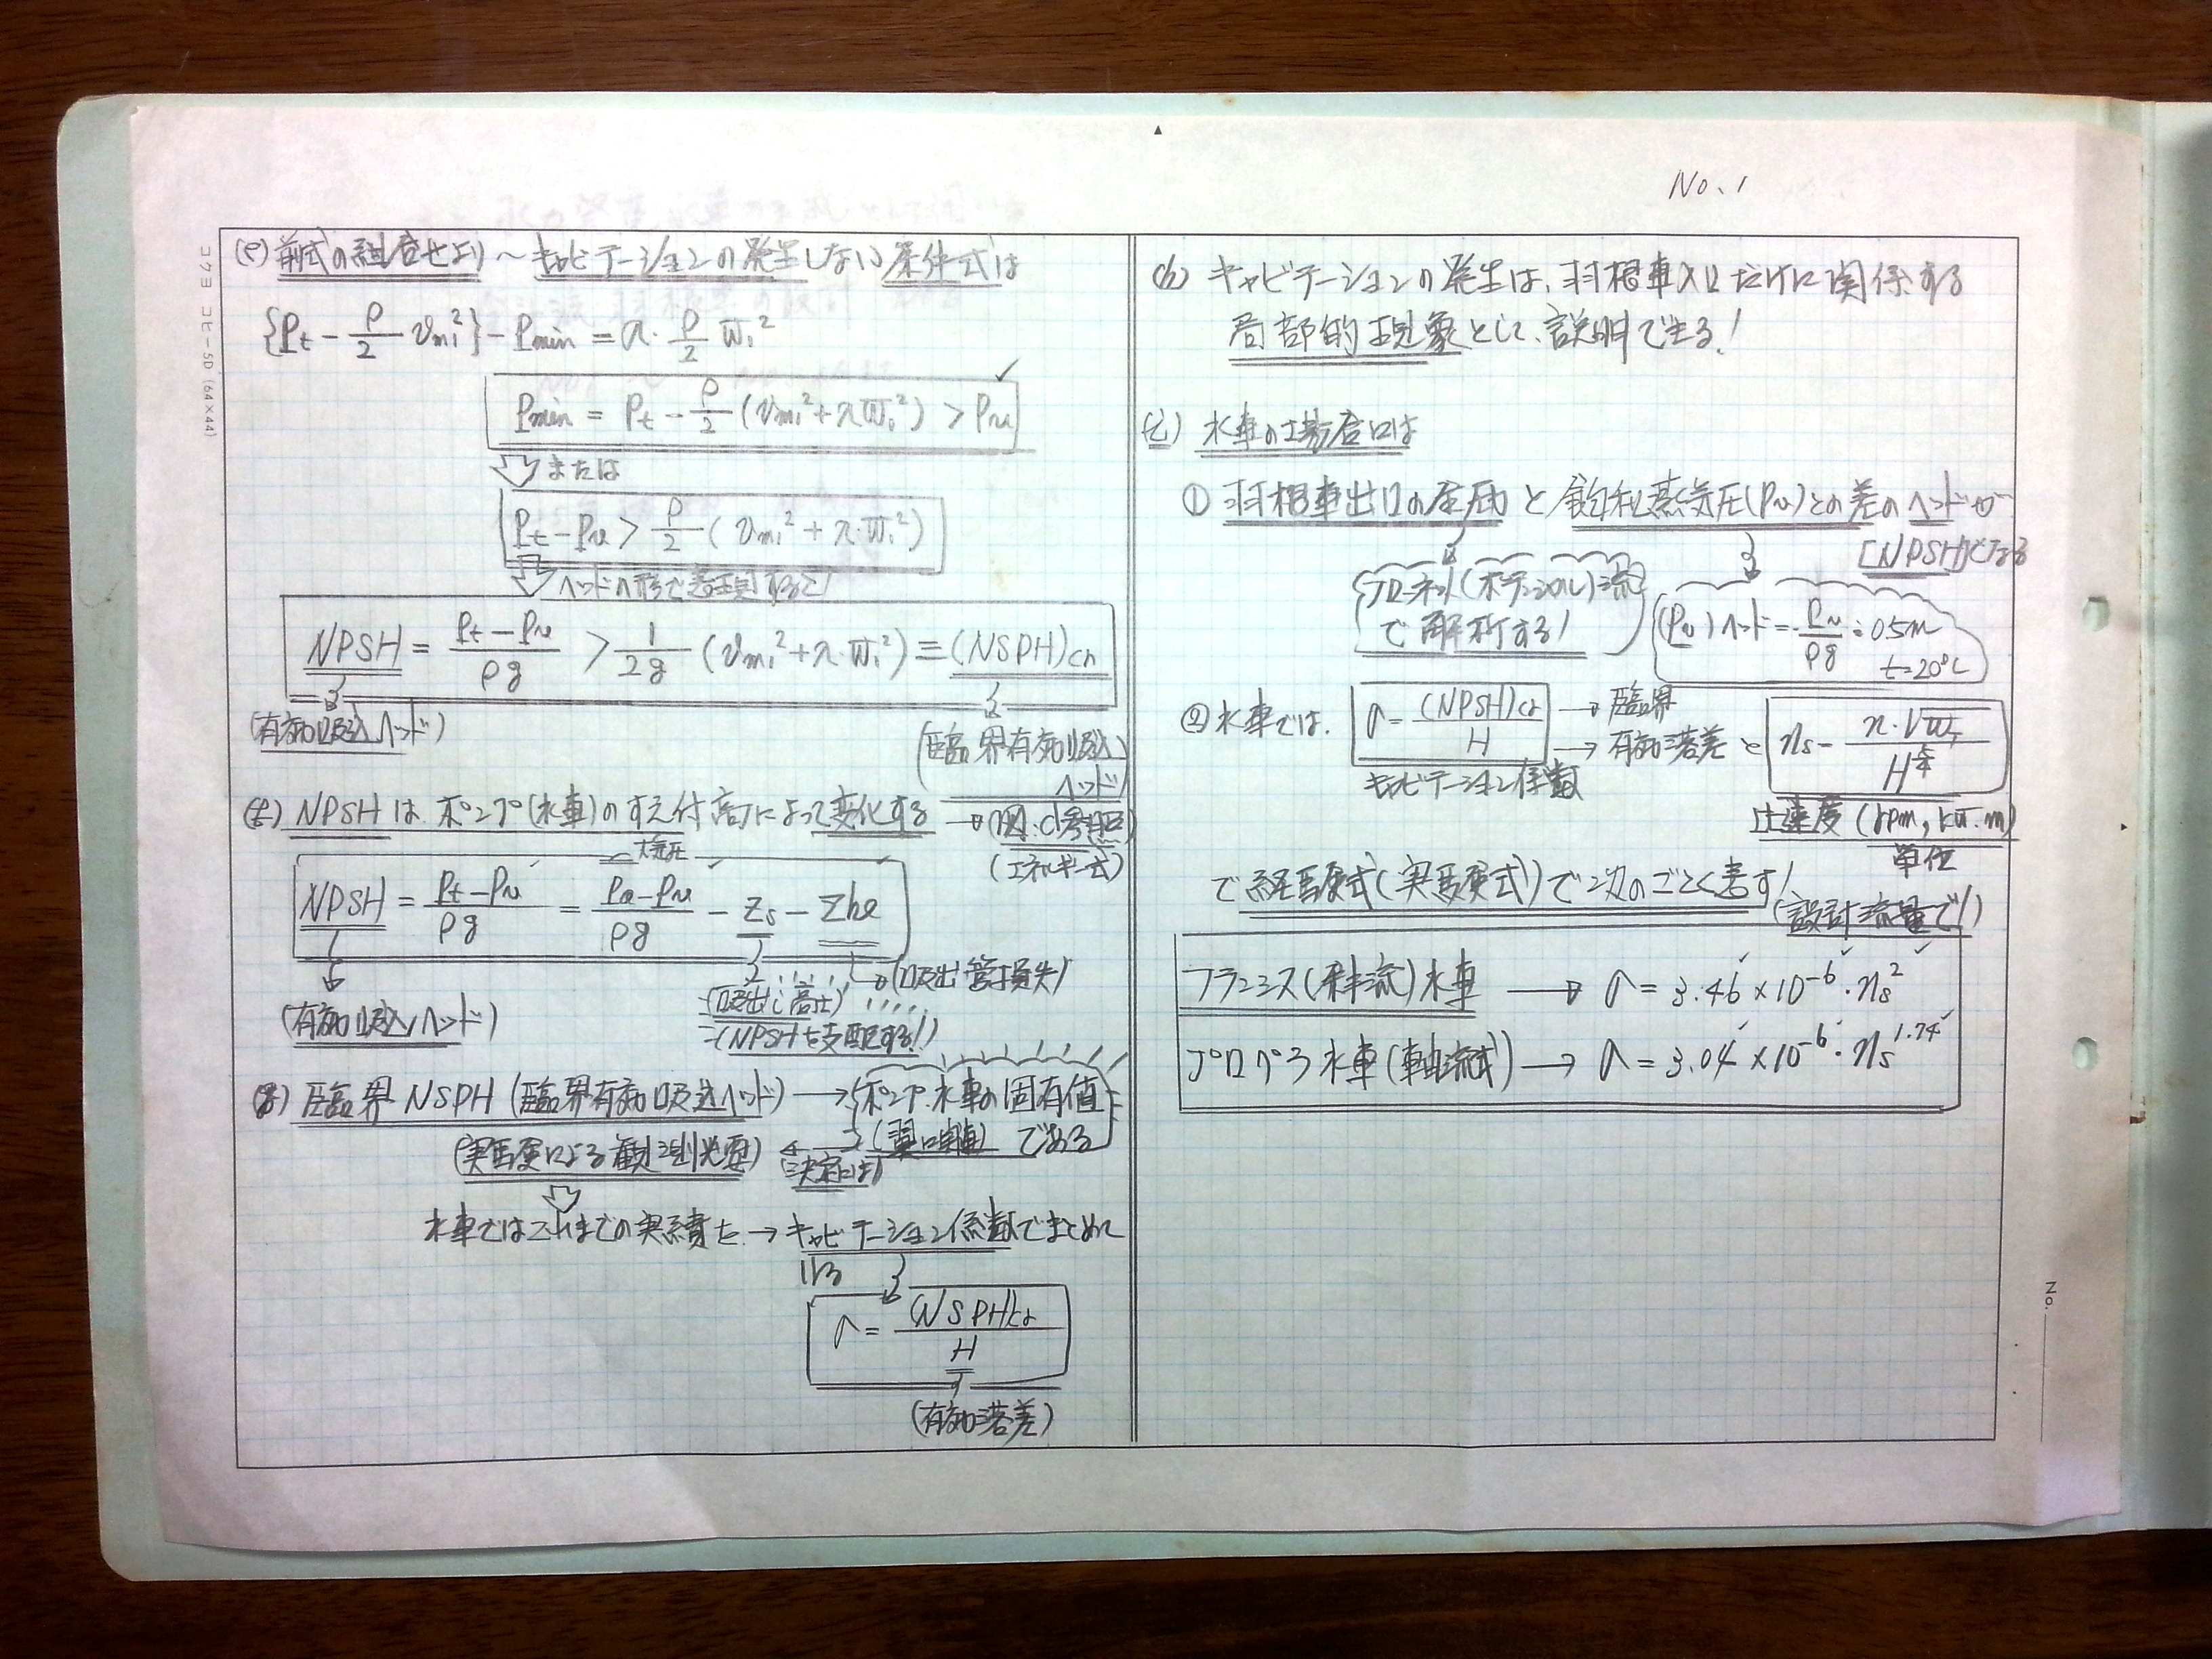 No.1
コクヨ コピー5D (64×44)
(e) 前式の組合せより〜キャビテーションの発生しない条件式は
{Pt − ρ/2 vm1²} − Pmin = λ・ρ/2 w1²
Pmin = Pt − ρ/2 (vm1² + λw1²) > Pv
または
Pt − Pv > ρ/2 (vm1² + λ・w1²)
ヘッドの形で表現すると!
NPSH = Pt − Pv / ρg > 1/2g (vm1² + λ・w1²) ≡ (NSPH)cr
(有効吸込ヘッド)
(臨界有効吸込
ヘッド)
(f) NPSHは ポンプ(水車)のすえ付高さによって変化する → (図.c参照)
(エネルギー式)
大気圧
NPSH = Pt − Pv / ρg = Pa − Pv / ρg − Zs − Σhl
(有効吸込ヘッド)
(吸出し高さ)
(吸出管損失)
(NPSHを支配する!)
(g) 臨界 NSPH (臨界有効吸込ヘッド) → ポンプ水車の固有値
(翼口車) である
(実験による観測必要) ← (決定には)
水車ではこれまでの実績を → キャビテーション係数でまとめて
いる
σ = (NSPH)cr / H
(有効落差)
(h) キャビテーションの発生は、羽根車入口だけに関係する
局部的現象として、説明できる!
(i) 水車の場合には
① 羽根車出口の全圧 と 飽和蒸気圧(Pv)との差のヘッドが
[NPSH]となる
フローネット(ポテンシャル)流
で解析する!
(Pv)ヘッド = Pv / ρg ≒ 0.5m
t=20℃
② 水車では、 σ = (NPSH)cr / H → 臨界
→ 有効落差 と ns = n・√w / H^5/4
キャビテーション係数
比速度 (rpm, kW, m)
単位
で経験式(実験式)で次のごとく表す!
(設計流量で!)
フランシス(斜流)水車 → σ = 3.46 × 10⁻⁶・ns²
プロペラ水車(軸流式) → σ = 3.04 × 10⁻⁶・ns^1.74
No.